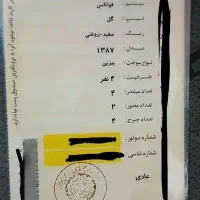 سیستم : فولکس
تیپ : گل
رنگ : سفید-روغنی
مدل : ۱۳۸۷
نوع سوخت : بنزین
ظرفیت : ۴ نفر
تعداد سیلندر : ۴
تعداد محور : ۲
تعداد چرخ : ۴
شماره موتور :
شماره شاسی :
عادی